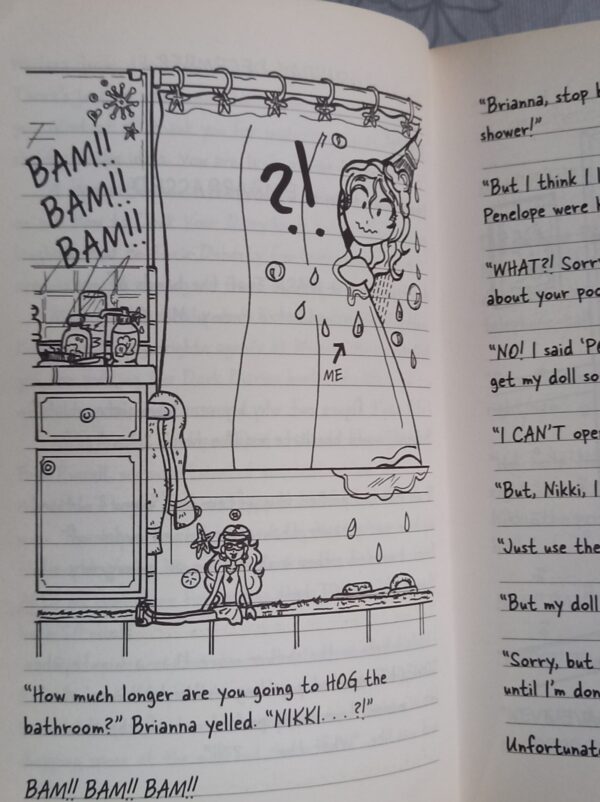 BAM!!
BAM!!
BAM!!
?!
ME
"How much longer are you going to HOG the
bathroom?" Brianna yelled. "NIKKI. . . ?!"
BAM!! BAM!! BAM!!
"Brianna, stop
shower!"
"But I think I
Penelope were
"WHAT?! Sorry
about your
"NO! I said
get my doll so
"I CAN'T
"But, Nikki, I
"Just use the
"But my doll
"Sorry, but
until I'm